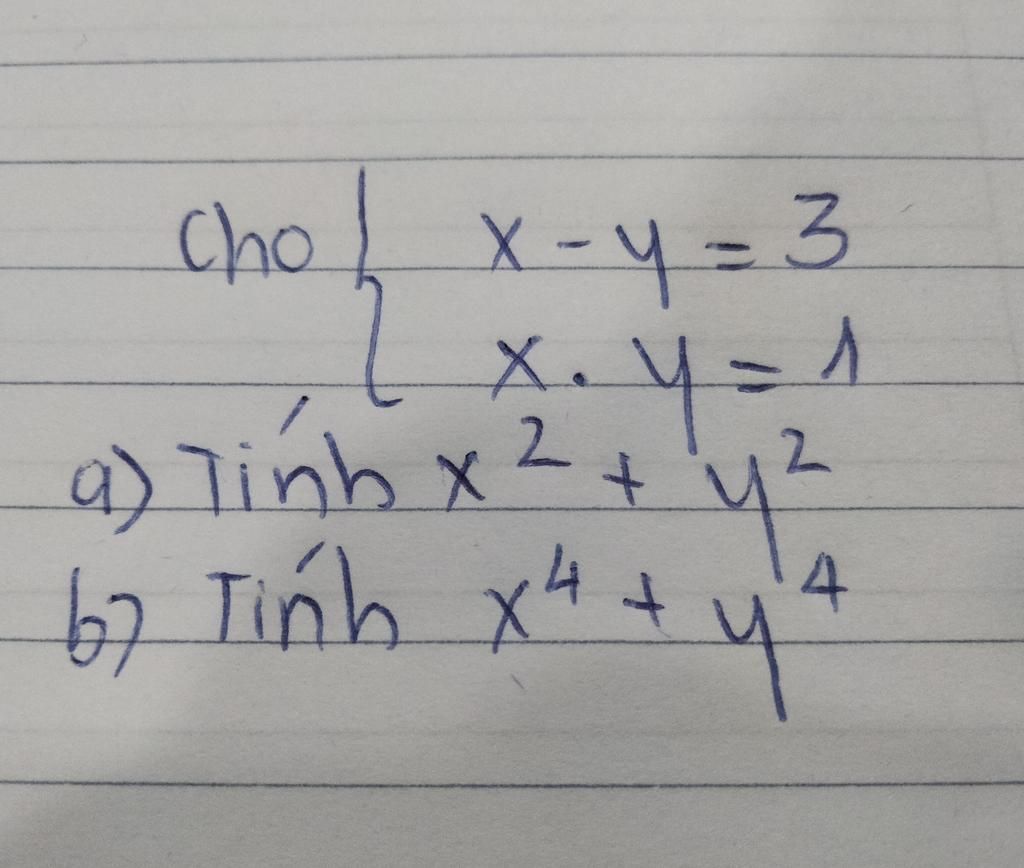 Cho { x - y = 3
x . y = 1
a) Tính x² + y²
b) Tính x⁴ + y⁴